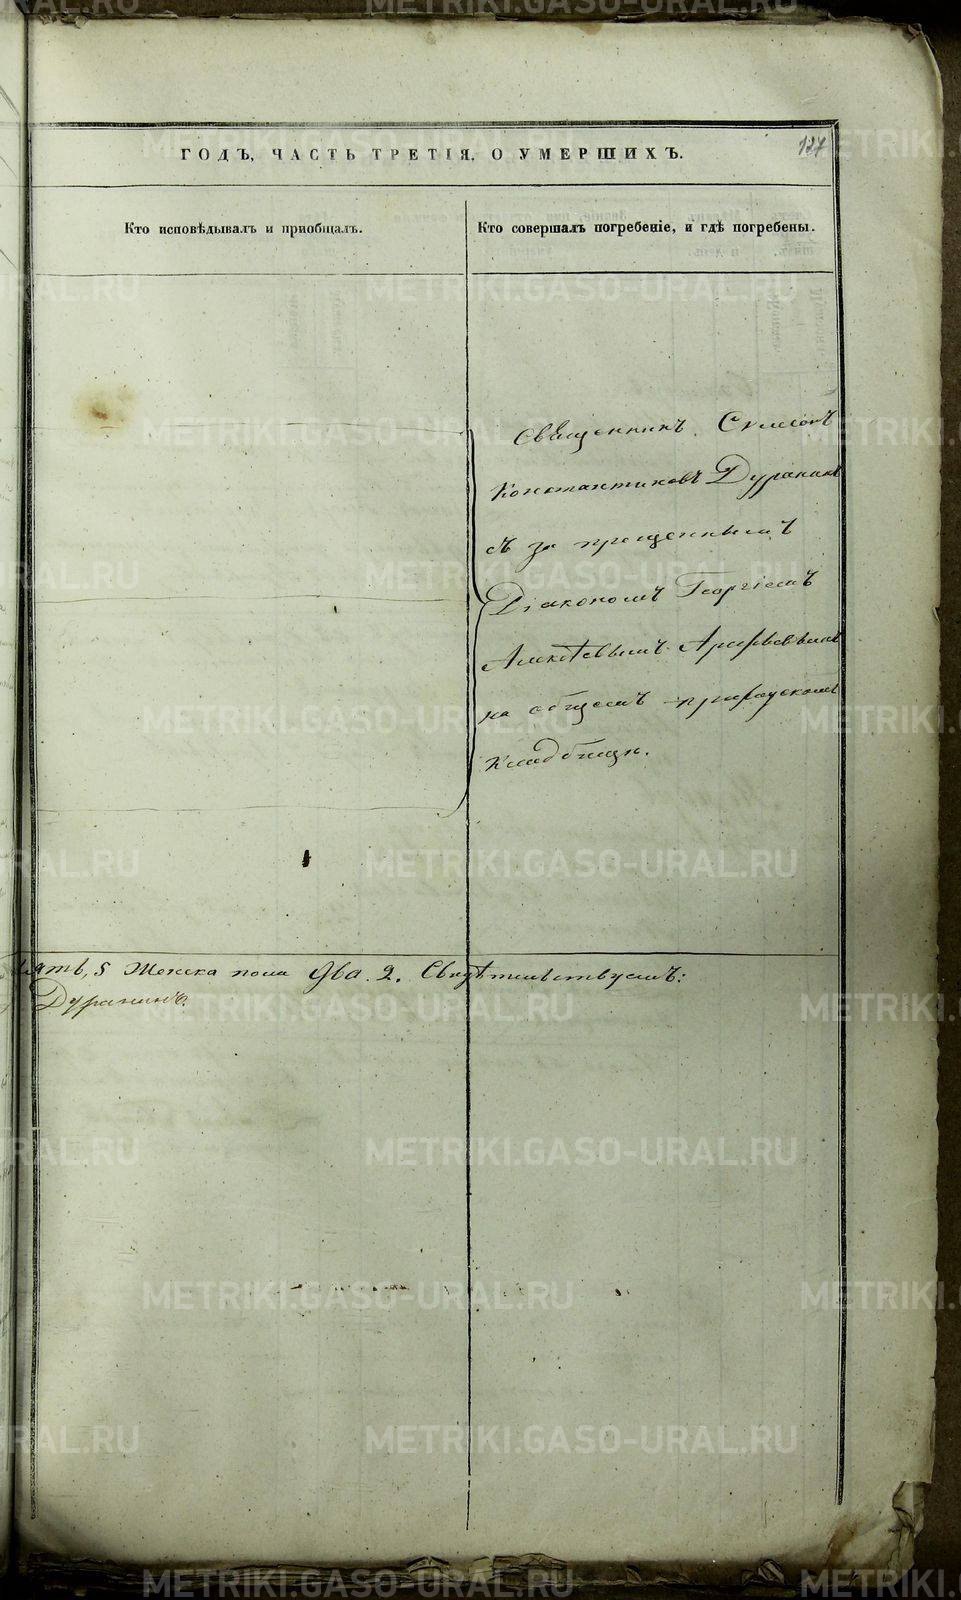 ГОДЪ, ЧАСТЬ ТРЕТІЯ, О УМЕРШИХЪ.
127
Кто исповѣдывалъ и пріобщалъ.
Кто совершалъ погребеніе, и гдѣ погребены.
Священникъ Симеонъ
Константиновъ Дуранинъ
съ запрещеннымъ
Діакономъ Георгіемъ
Алексѣевымъ Арефьевымъ
на общемъ приходскомъ
кладбищѣ.
пять, 5 Женска пола два. 2. Свидѣтельствуемъ:
Дуранинъ.
METRIKI.GASO-URAL.RU